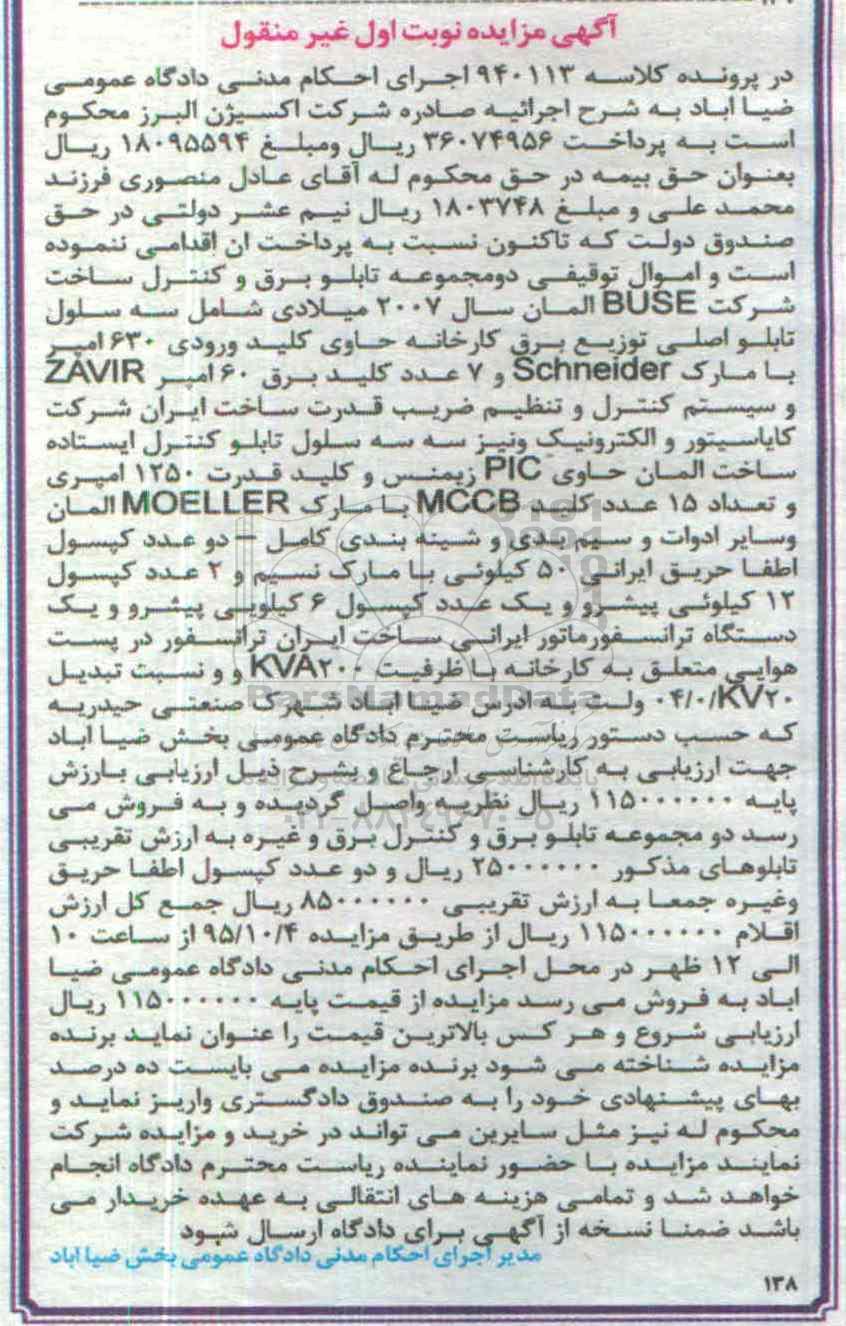 آگهی مزایده نوبت اول غیر منقول
در پرونده کلاسه ۹۴۰۱۱۳ اجرای احکام مدنی دادگاه عمومی
ضیا اباد به شرح اجرائیه صادره شرکت اکسیژن البرز محکوم
است به پرداخت ۳۶۰۷۴۹۵۶ ریال ومبلغ ۱۸۰۹۵۵۹۴ ریال
بعنوان حق بیمه در حق محکوم له آقای عادل منصوری فرزند
محمد علی و مبلغ ۱۸۰۳۷۴۸ ریال نیم عشر دولتی در حق
صندوق دولت که تاکنون نسبت به پرداخت ان اقدامی ننموده
است و اموال توقیفی دومجموعه تابلو برق و کنترل ساخت
شرکت BUSE المان سال ۲۰۰۷ میلادی شامل سه سلول
تابلو اصلی توزیع برق کارخانه حاوی کلید ورودی ۶۳۰ امپر
با مارک Schneider و ۷ عدد کلید برق ۶۰ امپر ZAVIR
و سیستم کنترل و تنظیم ضریب قدرت ساخت ایران شرکت
کاپاسیتور و الکترونیک ونیز سه سه سلول تابلو کنترل ایستاده
ساخت المان حاوی PIC زیمنس و کلید قدرت ۱۲۵۰ امپری
و تعداد ۱۵ عدد کلید MCCB با مارک MOELLER المان
وسایر ادوات و سیم بندی و شینه بندی کامل – دو عدد کپسول
اطفا حریق ایرانی ۵۰ کیلوئی با مارک نسیم و ۲ عدد کپسول
۱۲ کیلوئی پیشرو و یک عدد کپسول ۶ کیلویی پیشرو و یک
دستگاه ترانسفورماتور ایرانی ساخت ایران ترانسفور در پست
هوایی متعلق به کارخانه با ظرفیت KVA۲۰۰ و و نسبت تبدیل
۰۴/۰/KV۲۰ ولت به ادرس ضیا اباد شهرک صنعتی حیدریه
که حسب دستور ریاست محترم دادگاه عمومی بخش ضیا اباد
جهت ارزیابی به کارشناسی ارجاع و بشرح ذیل ارزیابی بارزش
پایه ۱۱۵۰۰۰۰۰۰۰ ریال نظریه واصل گردیده و به فروش می
رسد دو مجموعه تابلو برق و کنترل برق و غیره به ارزش تقریبی
تابلوهای مذکور ۲۵۰۰۰۰۰۰۰ ریال و دو عدد کپسول اطفا حریق
وغیره جمعا به ارزش تقریبی ۸۵۰۰۰۰۰۰۰ ریال جمع کل ارزش
اقلام ۱۱۵۰۰۰۰۰۰۰ ریال از طریق مزایده ۹۵/۱۰/۴ از ساعت ۱۰
الی ۱۲ ظهر در محل اجرای احکام مدنی دادگاه عمومی ضیا
اباد به فروش می رسد مزایده از قیمت پایه ۱۱۵۰۰۰۰۰۰۰ ریال
ارزیابی شروع و هر کس بالاترین قیمت را عنوان نماید برنده
مزایده شناخته می شود برنده مزایده می بایست ده درصد
بهای پیشنهادی خود را به صندوق دادگستری واریز نماید و
محکوم له نیز مثل سایرین می تواند در خرید و مزایده شرکت
نمایند مزایده با حضور نماینده ریاست محترم دادگاه انجام
خواهد شد و تمامی هزینه های انتقالی به عهده خریدار می
باشد ضمنا نسخه از آگهی برای دادگاه ارسال شود
مدیر اجرای احکام مدنی دادگاه عمومی بخش ضیا اباد
۱۳۸
ParsNamadData